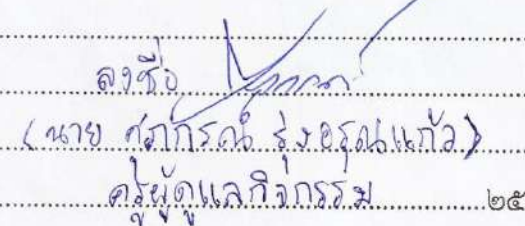 ลงชื่อ
(นาย ศุภกรณ์ รุ่งอรุณแก้ว)
ครูผู้ดูแลกิจกรรม ๒๕